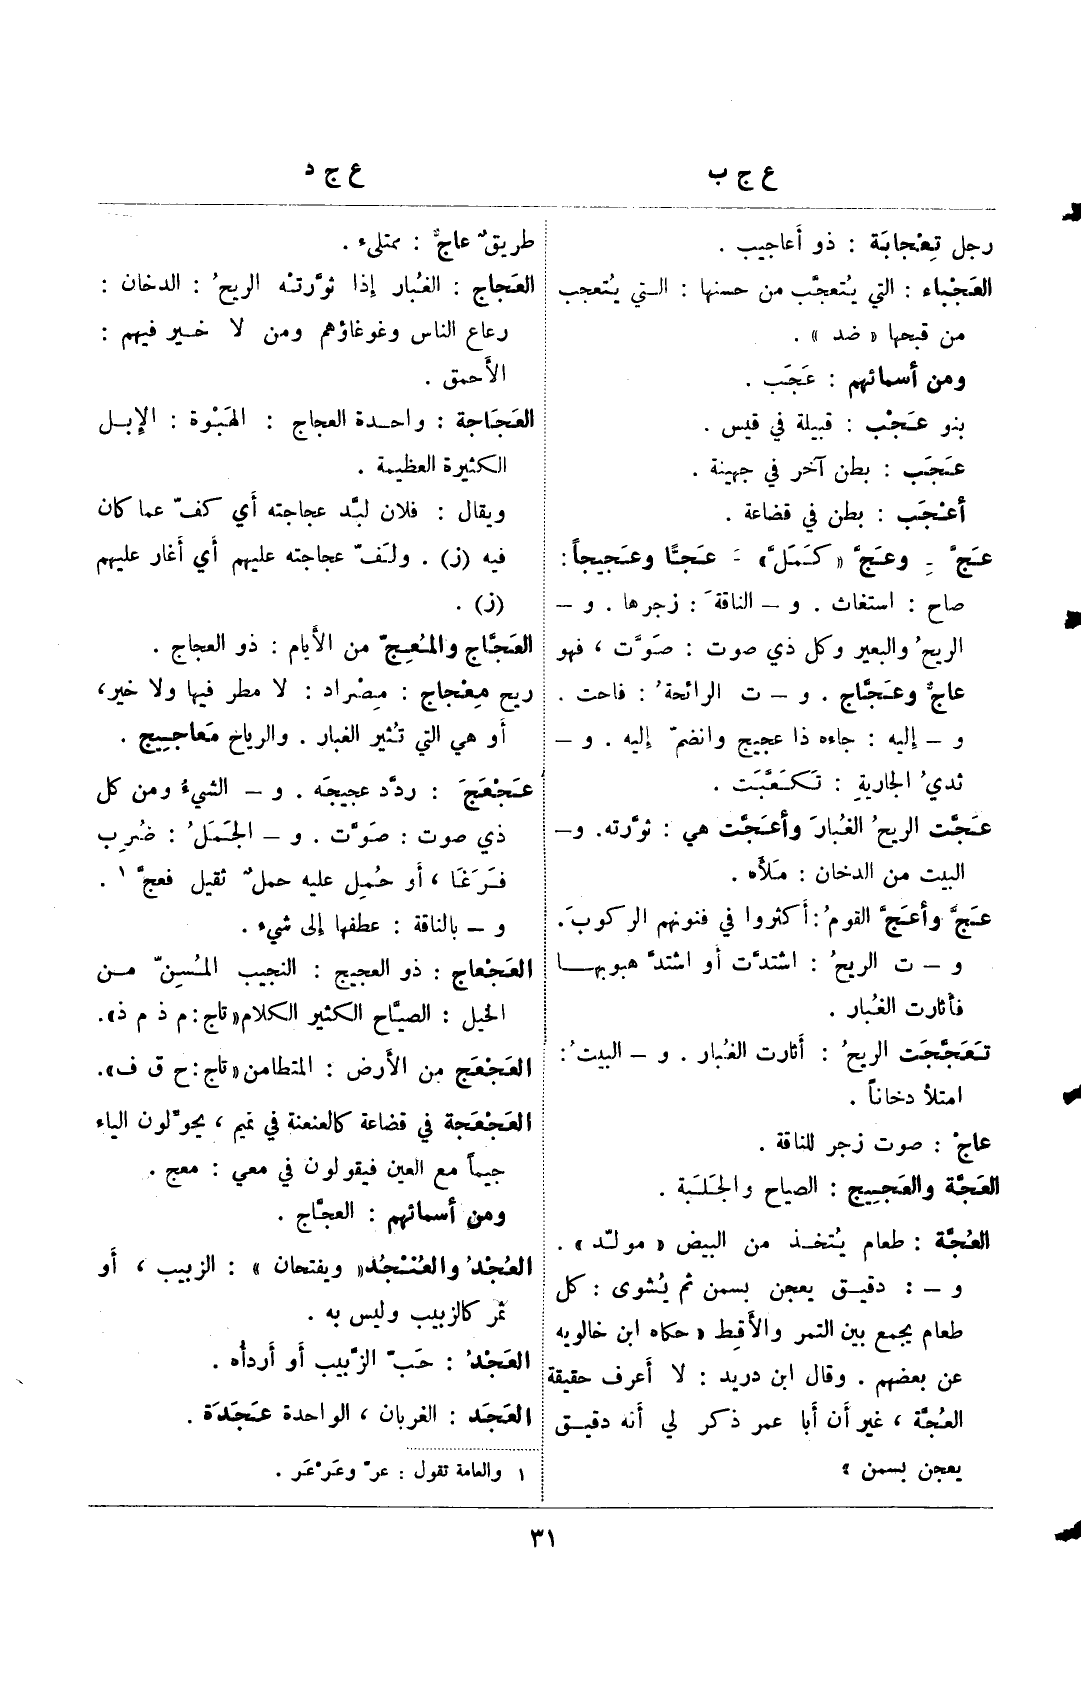 ع ج ب
ع ج د
رجل تِعْجابَة : ذو أعاجيب .
العَجْباء : التي يُتعجَّب من حسنها : التي يُتعجب
من قبحها « ضد » .
ومن أسمائهم : عَجَب .
بنو عَجْب : قبيلة في قيس .
عَجَب : بطن آخر في جهينة .
أعْجَب : بطن في قضاعة .
عَجَّ ـِ وعَجَّ « كَمَلَّ » ـَ عَجًّا وعَجيجاً :
صاح : استغاث . و — الناقةَ : زجرها . و —
الريحُ والبعير وكل ذي صوت : صَوَّت ، فهو
عاجٌّ وعَجَّاج . و — ت الرائحةُ : فاحت .
و — إليه : جاءه ذا عجيج وانضمّ إليه . و —
ثديُ الجاريةِ : تَكَعَّبَت .
عَجَّت الريحُ الغُبارَ وأعَجَّت هي : ثوَّرته. و—
البيت من الدخان : مَلأه .
عَجَّ وأعَجَّ القومُ : أكثروا في فنونهم الركوبَ.
و — ت الريحُ : اشتدَّت أو اشتدَّ هبوبهـا
فأثارت الغُبار .
تَعَجَّجَت الريحُ : أثارت الغُبار . و — البيتُ :
امتلأ دخاناً .
عاجْ : صوت زجر للناقة .
العَجَّة والعَجيج : الصياح والجَلَبة .
العُجَّة : طعام يُتخـذ من البيض « مولّد » .
و — : دقيـق يعجن بسمن ثم يُشوى : كل
طعام يجمع بين التمر والأقِط « حكاه ابن خالويه
عن بعضهم . وقال ابن دريد : لا أعرف حقيقة
العُجَّة ، غير أن أبا عمر ذكر لي أنه دقيـق
يعجن بسمن »
طريقٌ عاجٌّ : ممتلىء .
العَجاج : الغُبار إذا ثوَّرتْه الريحُ : الدخان :
رعاع الناس وغوغاؤهم ومن لا خـير فيهم :
الأحمق .
العَجَاجة : واحـدة العجاج : الهَبْوة : الإبـل
الكثيرة العظيمة .
ويقال : فلان لبَّد عجاجته أي كفّ عما كان
فيه (ز) . ولَفّ عجاجته عليهم أي أغار عليهم
(ز) .
العَجَّاج والمُعِجّ من الأيام : ذو العجاج .
ريح مِعْجاج : مِصْراد : لا مطر فيها ولا خير،
أو هي التي تُثير الغبار . والرياح مَعاجيج .
عَجْعَجَ : ردَّد عجيجَه . و — الشيءُ ومن كل
ذي صوت : صَوَّت . و — الجَمَلُ : ضُرِب
فَرَغَا ، أو حُمِل عليه حملٌ ثقيل فعجَّ ١ .
و — بالناقة : عطفها إلى شيء .
العَجْعاج : ذو العجيج : النجيب المُسِنّ مـن
الخيل : الصيَّاح الكثير الكلام « تاج : م ذ م ذ ».
العَجْعَج مِن الأرض : المتطامن « تاج : ح ق ف ».
العَجْعَجة في قضاعة كالعنعنة في تميم ، يحوِّلون الياء
جيماً مع العين فيقولون في معي : معج .
ومن أسمائهم : العجَّاج .
العُجْدُ والعُنْجُد « ويفتحان » : الزبيب ، أو
ثمر كالزبيب وليس به .
العَجْدُ : حَبّ الزَّبيب أو أردأه .
العَجَد : الغربان ، الواحدة عَجَدَة .
١ والعامة تقول : عرّ وعَرْعَر .
٣١